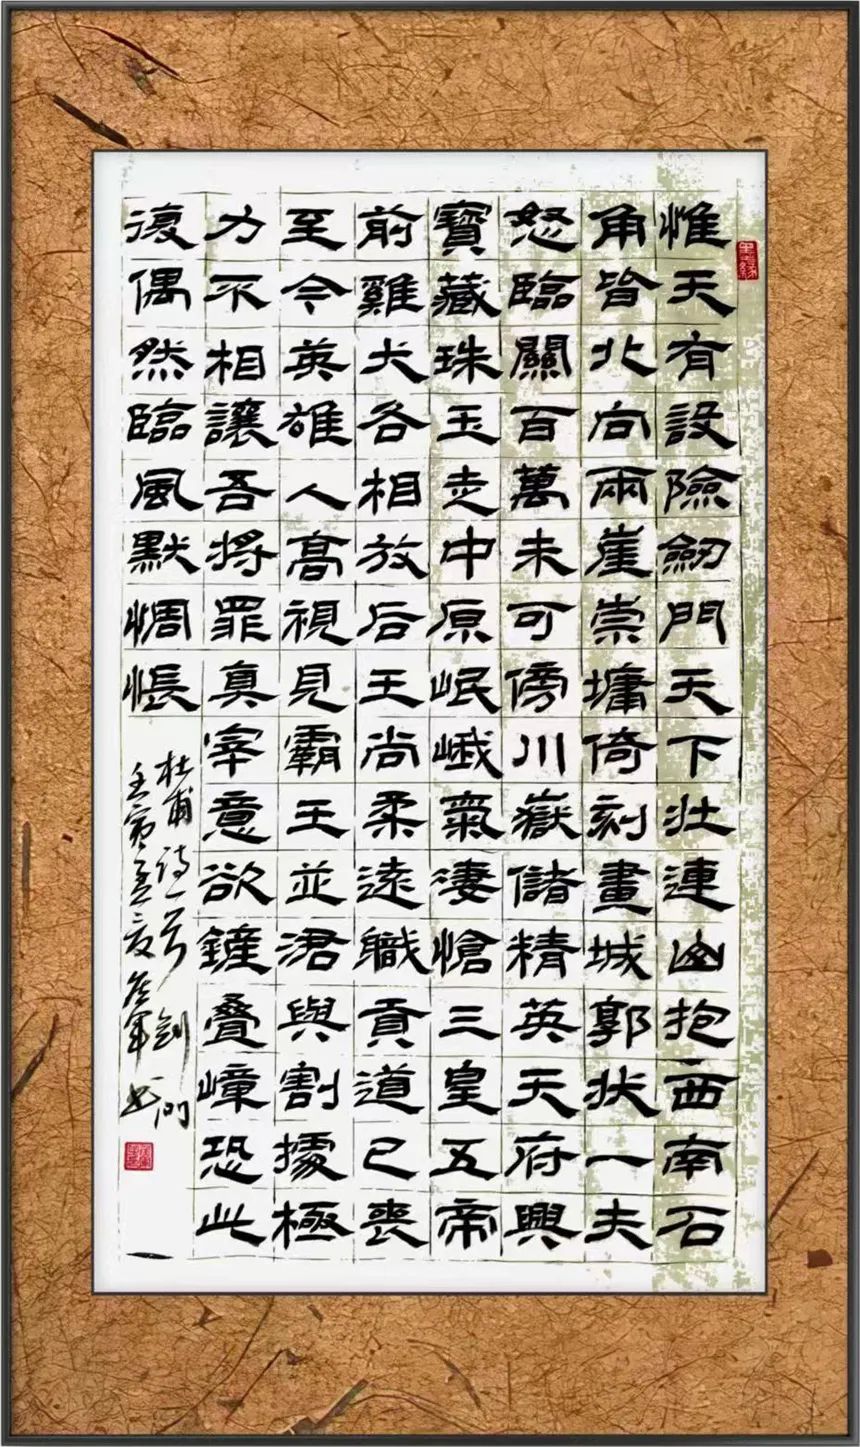 惟天有設險劒門天下壯連山抱西南石
角皆北向兩崖崇墉倚刻畫城郭狀一夫
怒臨關百萬未可傍川嶽儲精英天府興
寶藏珠玉走中原岷峨氣淒愴三皇五帝
前雞犬各相放后王尚柔遠職貢道已喪
至今英雄人高視見霸王並涒與割據極
力不相讓吾將罪真宰意欲鏟叠嶂恐此
復偶然臨風默惆悵
杜甫诗一首剑门
壬寅孟夏军书